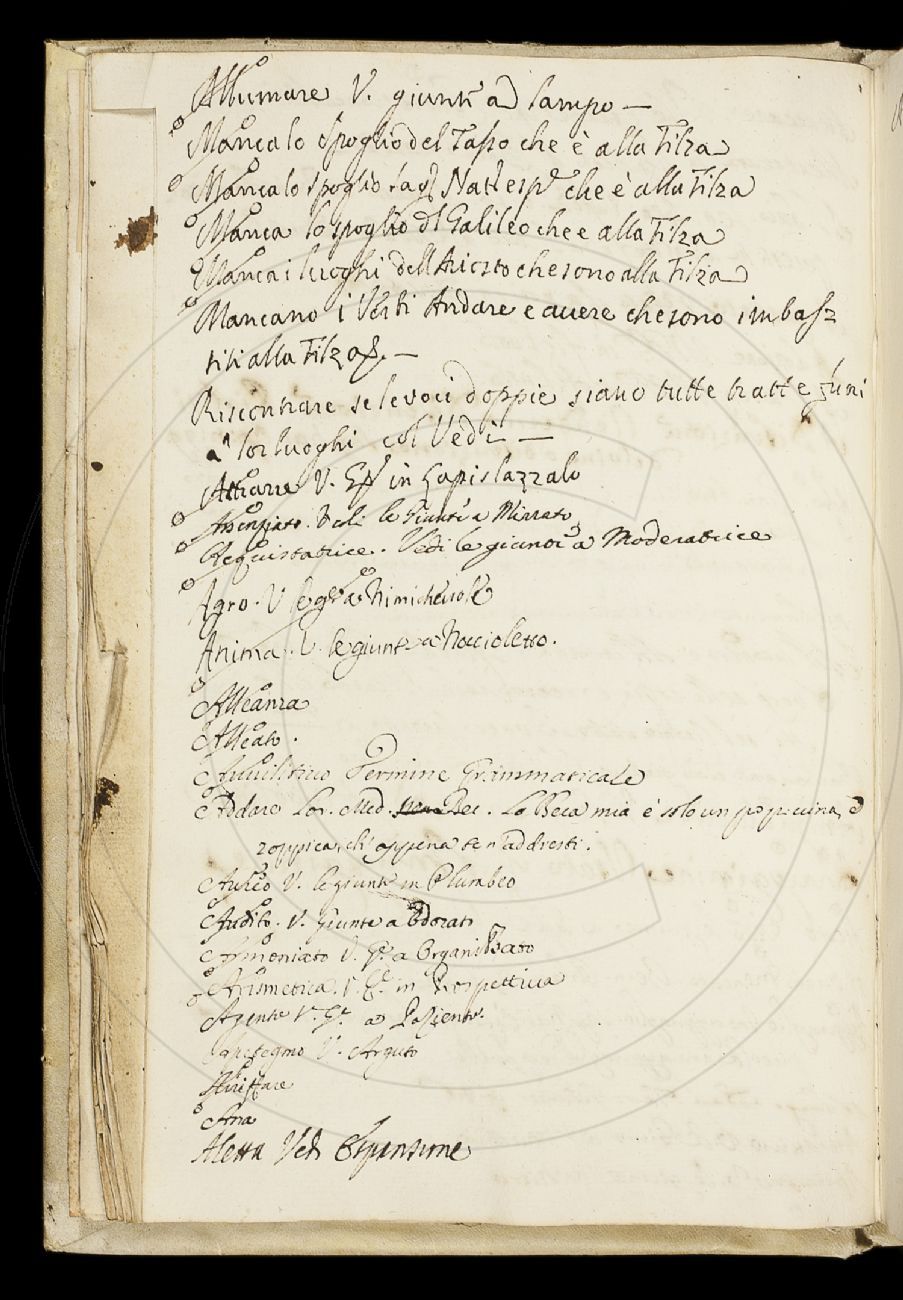 Allumare V. giunte ad lampo —
Manca lo spoglio del Tasso che è alla Filza
Manca lo spoglio sag. Nat. esp. che è alla Filza
Manca lo spoglio dl Galileo che e alla Filza
Manca i luoghi dell Ariosto che sono alla Filza
Mancano i Verbi Andare e avere che sono imbas
titi alla Filza —
Riscontrare se le voci doppie siano tutte tratte funi
a lor luoghi col Vedi —
Attrarre V. in Lapislazzalo
Assenziato. Vedi le Giunte a Mirrato
Acquistatrice. Vedi le giunte a Moderatrice
Agro. V le a Nimichevole
Anima. V. le giunte a Noccioletto.
Alleanza
Alleato.
Termine Grammaticale
Addare Lor. Med. Bec. La Beca mia è solo un po piccina, e
zoppica, ch' appena te n' addresti.
Aureo V. le giunte in Plumbeo
Audito. V. Giunte a Odorato
Armoniato V. Ge. a Organizzato
Arismetica. V. Ge. in Prospettiva
Agente V. Ge. a Paziente.
V. Arguto
Ana
Aletta Vedi Espansione